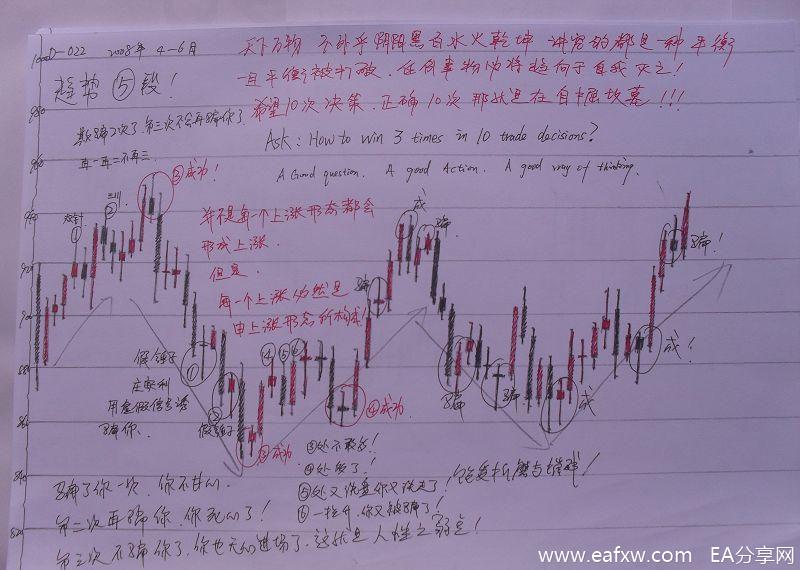 1000 D-022 2008年 4-6月
天下万物 不外乎阴阳黑白水火乾坤 讲究的都是一种平衡
趋势⑤段!
一旦平衡被打破, 任何事物必将趋向于自我灭亡!
980
希望10次决策,正确10次那就是在自掘坟墓!!!
欺骗2次了,第三次不会再骗你了
Ask: How to win 3 times in 10 trade decisions?
960
再一再二不再三.
A Good question. A good Action. A good way of thinking.
③成功!
②
①
940
并不是每一个上涨形态都会
形成上涨.
但是.
每一个上涨必然是
由上涨形态所构成!
成
骗
骗
骗!
920
900
880
假锤子
①
④ ⑤ ⑥
庄家利
用虚假信号诱
骗你.
②
假锤子
860
④成功
骗
骗
成
成!
③成功
③处不敢多!
④处后了!
840
⑤处又洗盘你又洗走了!
⑥一拉升,你又被骗了!
骗了你一次,你不甘心.
第二次再骗你,你死心了!
820
第三次不骗你了,你也无心进场了,这就是人性之弱点!
www.eafxw.com EA分享网